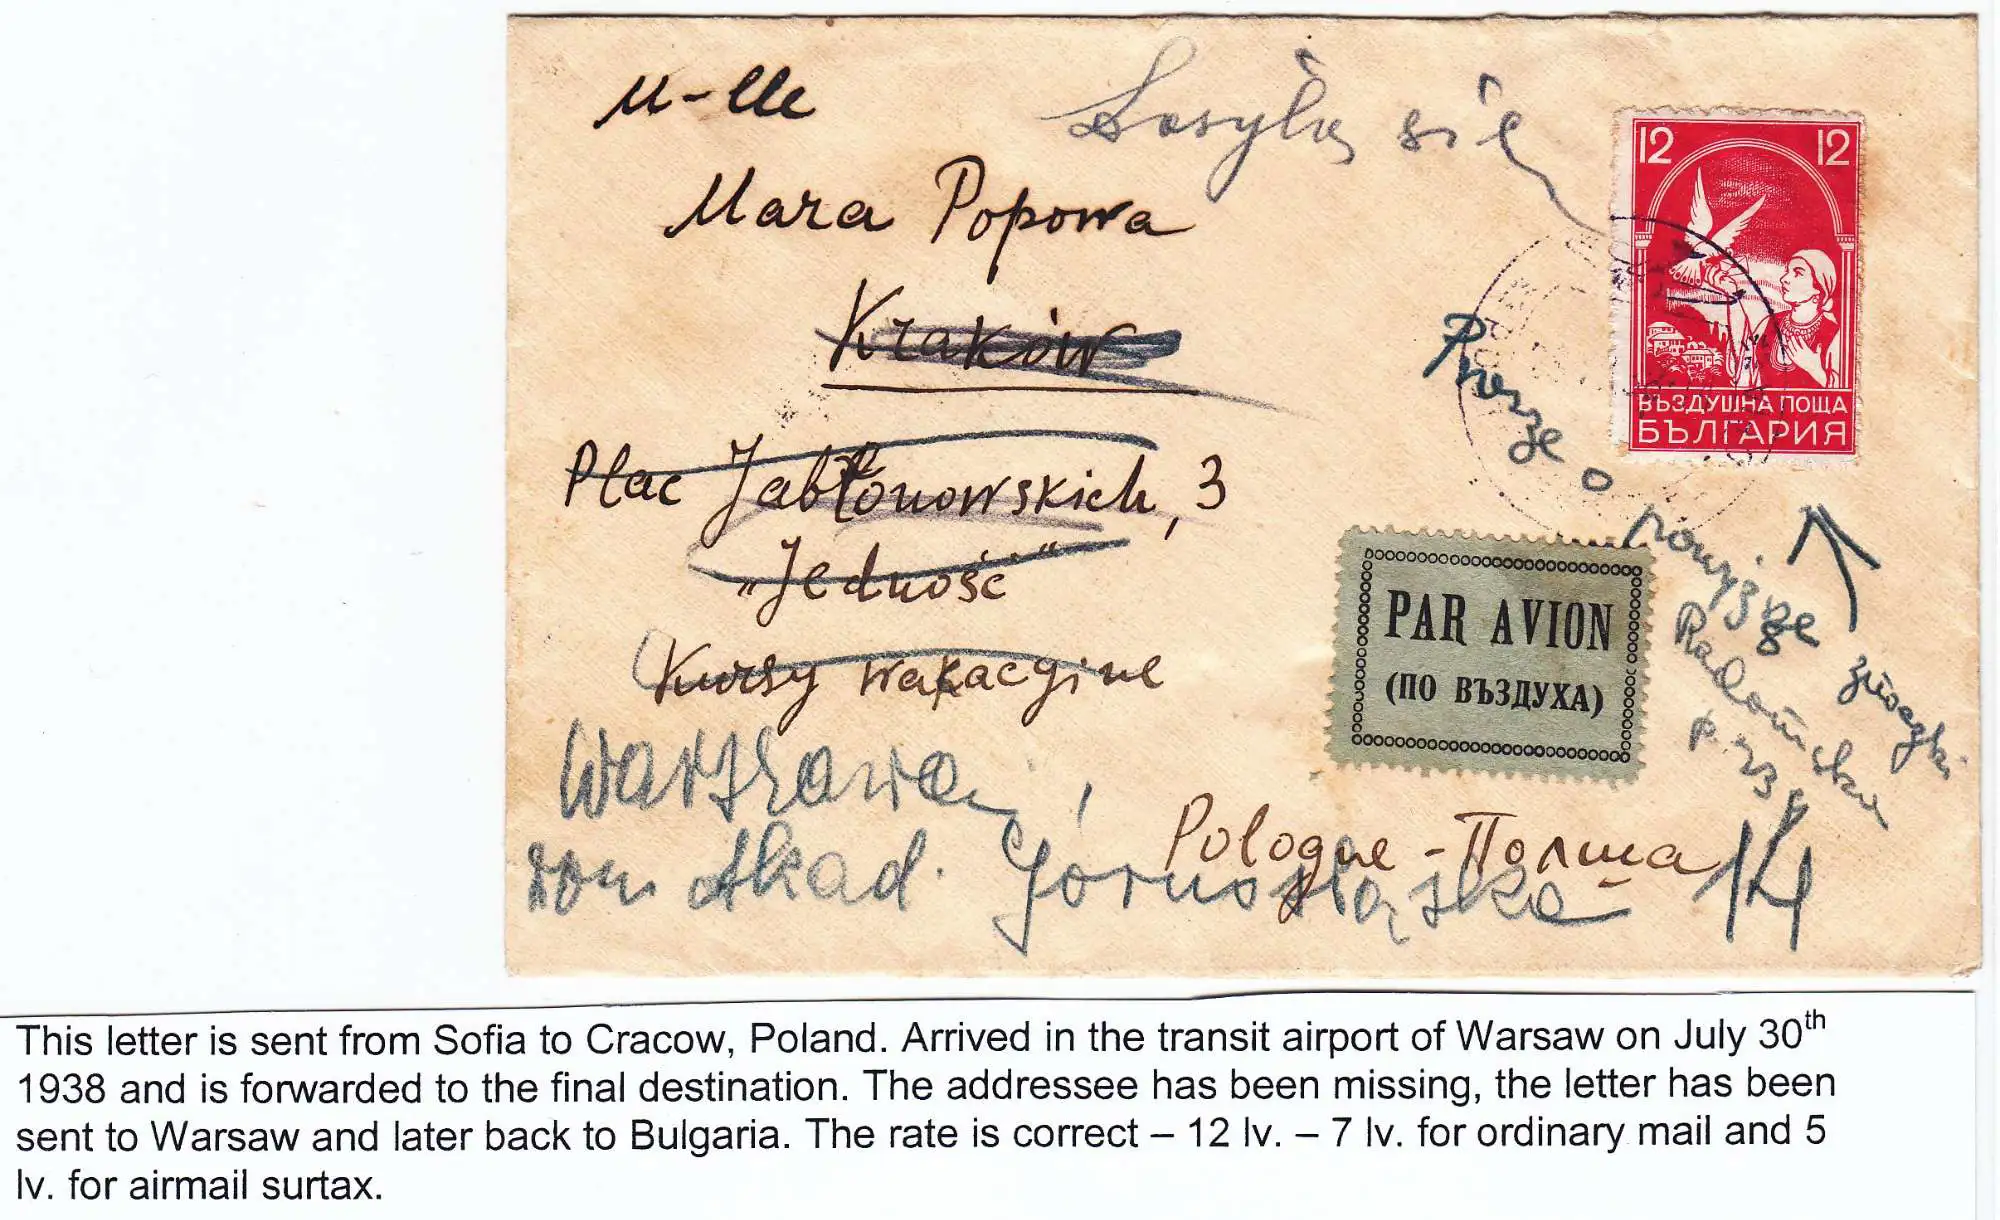 M-lle
Mara Popowa
Kraków
Plac Jabłonowskich, 3
„Jedność"
Kursy wakacyjne
Warszawa,
dom Akad. Górnośląska 14
Pologne - Полша
się
Proszę o powyższe
znaczki
Radomska
12 12
ВЪЗДУШНА ПОЩА
БЪЛГАРИЯ
PAR AVION
(ПО ВЪЗДУХА)
This letter is sent from Sofia to Cracow, Poland. Arrived in the transit airport of Warsaw on July 30th
1938 and is forwarded to the final destination. The addressee has been missing, the letter has been
sent to Warsaw and later back to Bulgaria. The rate is correct – 12 lv. – 7 lv. for ordinary mail and 5
lv. for airmail surtax.